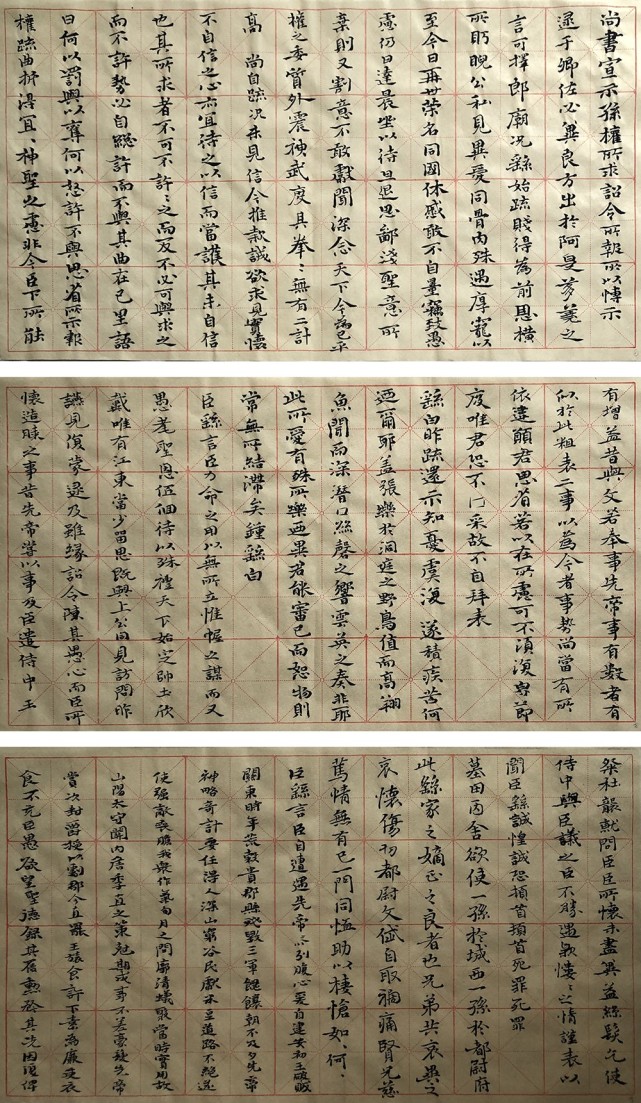 尚書宣示孫權所求詔令所報所以博示
逮于卿佐必冀良方出於阿是芻蕘之
言可擇郎廟況繇始疏賤得為前恩橫
所盱睨公私見異愛同骨肉殊遇厚寵以
至今日再世榮名同國休慼敢不自量竊致愚
慮仍日達晨坐以待旦退思鄙淺聖意所
棄則又割意不敢獻聞深念天下今為已平
權之委質外震神武度其拳〻無有二計
高尚自疏況未見信今推款誠欲求見實懷
不自信之心亦宜待之以信而當護其未自信
也其所求者不可不許〻之而反不必可與求之
而不許勢必自絕許而不與其曲在己里語
曰何以罰與以奪何以怒許不與思省所示報
權疏曲折得宜〻神聖之慮非今臣下所能
有增益昔與文若奉事先帝事有數者有
似於此粗表二事以為今者事勢尚當有所
依違願君思省若以在所慮可不須復節
度唯君恐不可采故不自拜表
繇白昨疏還示知憂虞復遂積疾苦何
迺爾耶蓋張樂於洞庭之野鳥值而高翔
魚聞而深潛絲磬之響雲英之奏非耶
此所愛有殊所樂迺異君能審己而恕物則
常無所結滯矣鍾繇白
臣繇言臣力命之用以無所立惟幄之謀而又
愚耄聖恩佪待以殊禮天下始定師土欣
戴唯有江東當少留思既與上公同見訪問昨
讌見復蒙逮及雖緣詔令陳其愚心而臣所
懷造膝之事昔先帝嘗以事及臣遣侍中王
粲杜襲就問臣臣所懷未盡冀益絲髮乞使
侍中與臣議之臣不勝愚款悽〻之情謹表以
聞臣繇誠惶誠恐頓首頓首死罪死罪
墓田丙舍欲使一孫於城西一孫於都尉府
此繇家之嫡正之良者也兄弟共哀異之
哀懷傷切都尉文岱自取禍痛賢兄慈
篤情無有已一門同恤助以悽愴如〻何〻
臣繇言臣自遭遇先帝忝列腹心爰自建安初王師破賊
關東時年荒穀貴郡縣殘毀三軍餽饟朝不及夕先帝
神略奇計委任得人深山窮谷民獻米豆道路不絕遂
使強敵喪膽我衆作氣旬月之間廓清蟻聚當時實用故
山陽太守關內侯季直之策剋期成事不差豪髮先帝
賞次封爵授以劇郡今直罷任旅食許下素為廉吏衣
食不充臣愚欲望聖德錄其舊勳矜其老困復俾